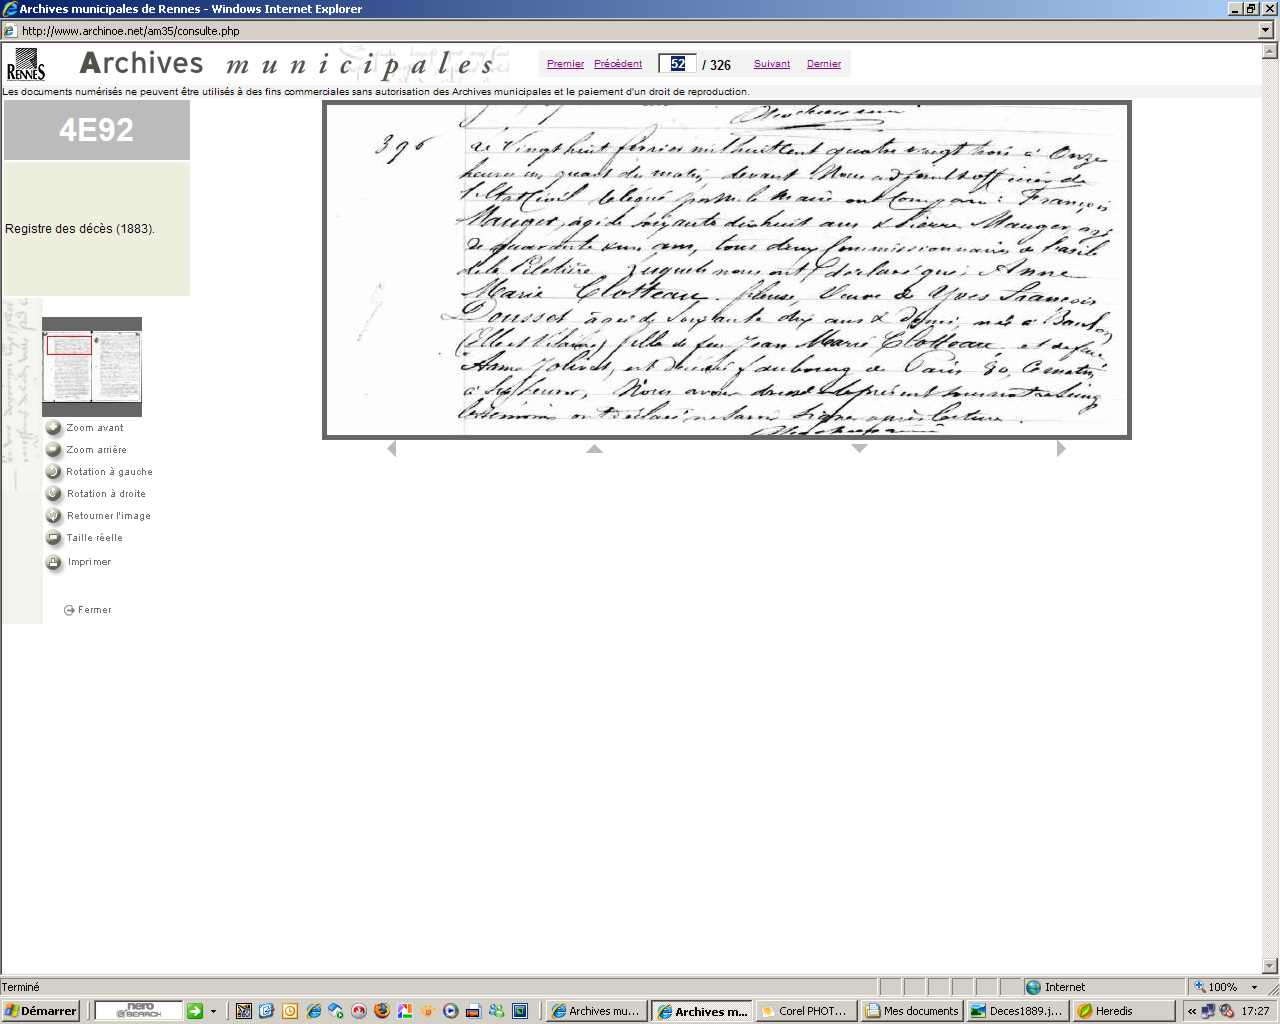 Archives municipales de Rennes - Windows Internet Explorer
http://www.archinoe.net/am35/consulte.php
RENNES
Archives municipales
Premier Précédent 52 / 326 Suivant Dernier
Les documents numérisés ne peuvent être utilisés à des fins commerciales sans autorisation des Archives municipales et le paiement d'un droit de reproduction.
4E92
Registre des décès (1883).
396
Le Vingt huit février mil huit cent quatre vingt trois à Onze
heures un quart du matin, devant Nous adjoint officier de
l'Etat Civil délégué par M. le Maire ont Comparu : François
Mauger, agé de soixante dixhuit ans & Pierre Mauger, agé
de quarante un ans, tous deux Commissionnaires
de la Piletière lesquels nous ont déclaré que : Anne
Marie Clotteau fileuse, Veuve de Yves François
Dousset agée de Soixante dix ans & demi, née à
(Ille et Vilaine) fille de feu Jean Marie Clotteau et de feue
Anne Jolivet, est décédée faubourg de Paris 80, Ce matin,
à Six heures, Nous avons dressé le présent sous notre seing
Les témoins ont déclaré ne savoir Signer après lecture.
Zoom avant
Zoom arrière
Rotation à gauche
Rotation à droite
Retourner l'image
Taille réelle
Imprimer
Fermer
Terminé
Internet
100%
Démarrer
nero
SEARCH
Archives mu...
Archives m...
Corel PHOT...
Mes documents
Deces1889.j...
Heredis
«
17:27